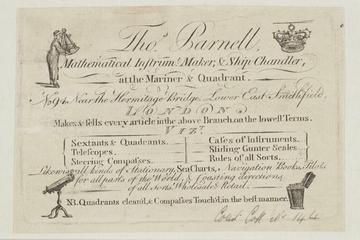 Tho.s Barnell,
Mathematical Instrum.t Maker, & Ship Chandler,
at the Mariner & Quadrant.
N.o 94 Near The Hermitage Bridge Lower East Smithfield,
LONDON
Makes & sells every article in the above Branch, on the lowest Terms.
VIZ.t
Sextants & Quadrants.
Telescopes.
Steering Compasses.
Cases of Instruments.
Sliding Gunter Scales
Rules of all Sorts.
Likewise all kinds of Stationary, Sea Charts, Navigation Books, Pilots
for all parts of the World, & Coasting directions,
of all Sorts, Wholesale & Retail.
NB. Quadrants clean'd, & Compasses Touch'd in the best manner.